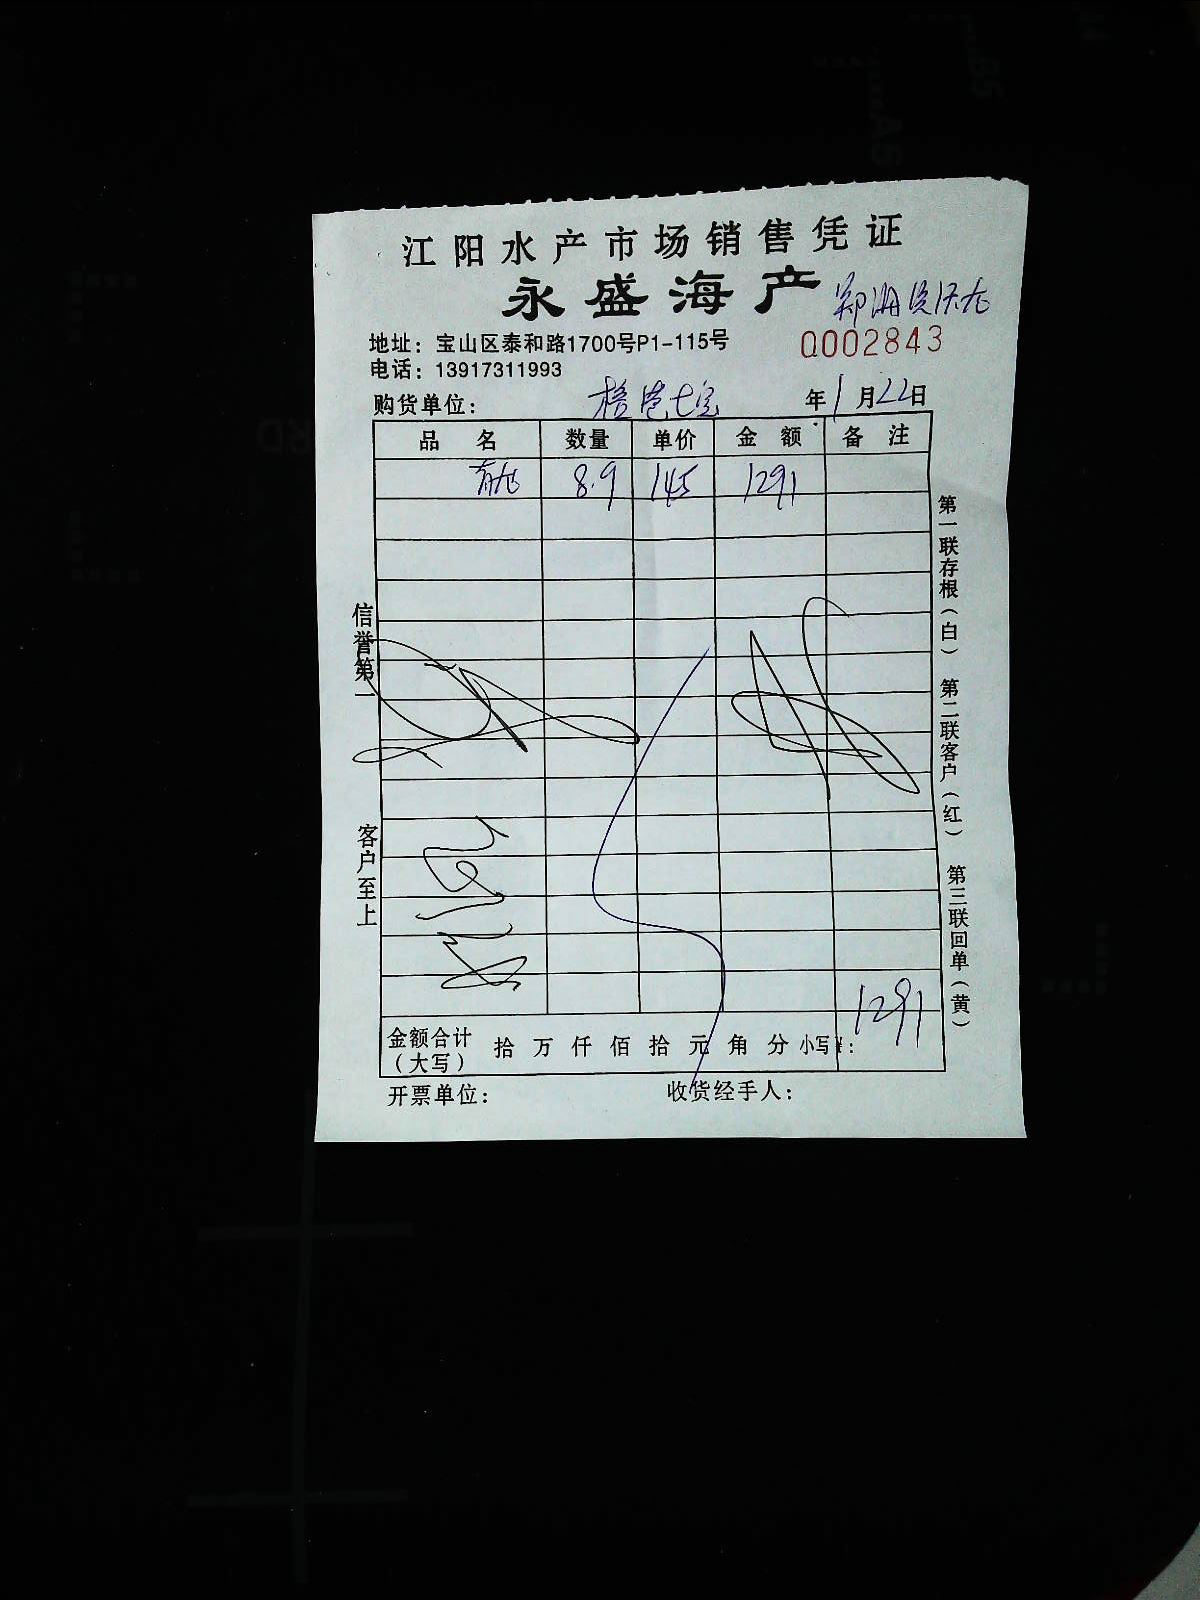 江阳水产市场销售凭证
永盛海产
地址：宝山区泰和路1700号P1-115号
0002843
电话：13917311993
购货单位： 年1月22日
品名 数量 单价 金额 备注
8.9 145 1291
信誉第一
客户至上
第一联存根（白） 第二联客户（红） 第三联回单（黄）
金额合计（大写） 拾 万 仟 佰 拾 元 角 分 小写¥： 1291
开票单位： 收货经手人：